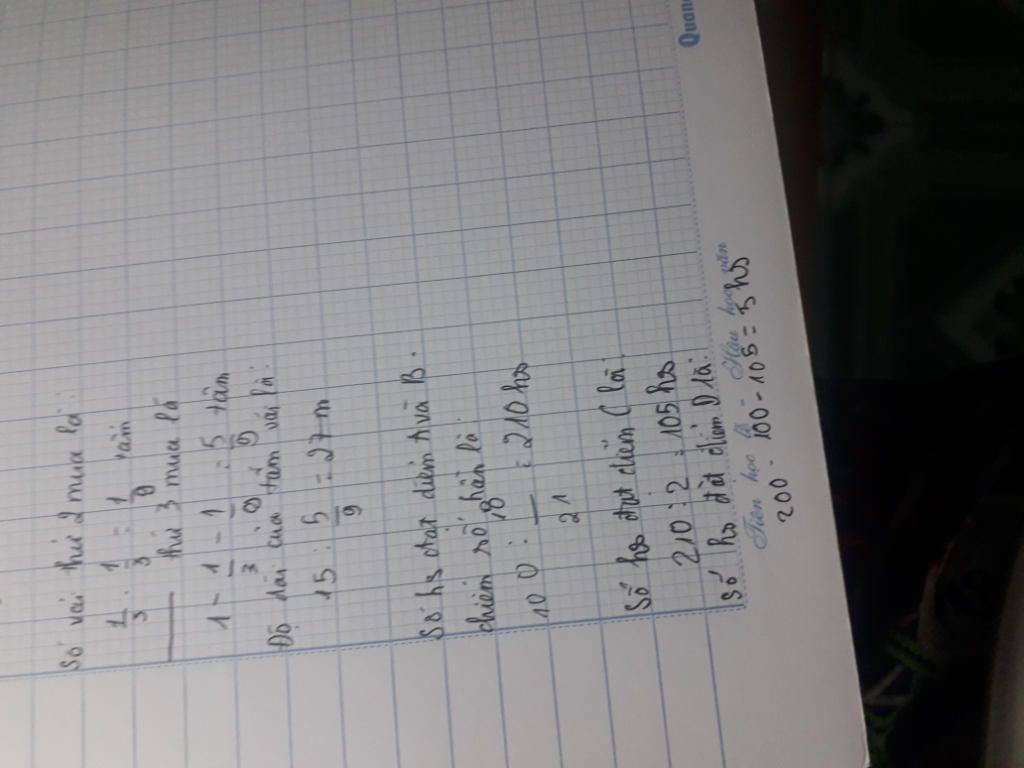 Số vải thứ 2 mua là:
1/3 . 1/3 = 1/9 tấm
thứ 3 mua là
1 - 1/3 - 1/9 = 5/9 tấm
Độ dài của tấm vải là:
15 : 5/9 = 27m
Số hs đạt điểm A và B.
chiếm số phần là:
100 : 18/21 = 210 hs
Số hs đạt điểm C là:
210 : 2 = 105 hs
Số hs đạt điểm D là:
Tiên học lễ - Hậu học văn
200 - 100 - 105 = 5 hs